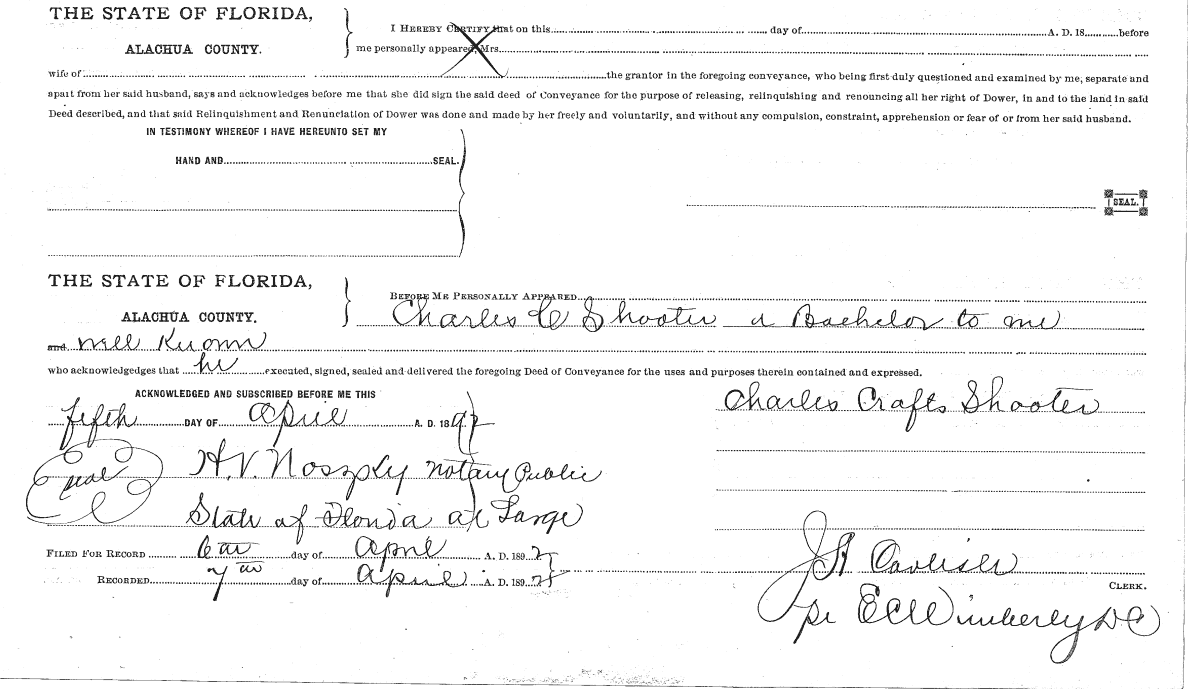 THE STATE OF FLORIDA,
ALACHUA COUNTY.
I HEREBY CERTIFY that on this day of A. D. 18 before
me personally appeared, Mrs.
wife of the grantor in the foregoing conveyance, who being first duly questioned and examined by me, separate and
apart from her said husband, says and acknowledges before me that she did sign the said deed of Conveyance for the purpose of releasing, relinquishing and renouncing all her right of Dower, in and to the land in said
Deed described, and that said Relinquishment and Renunciation of Dower was done and made by her freely and voluntarily, and without any compulsion, constraint, apprehension or fear of or from her said husband.
IN TESTIMONY WHEREOF I HAVE HEREUNTO SET MY
HAND AND SEAL.
SEAL.
THE STATE OF FLORIDA,
ALACHUA COUNTY.
BEFORE ME PERSONALLY APPEARED
Charles C Shooter a Bachelor to me
and well Known
who acknowledges that he executed, signed, sealed and delivered the foregoing Deed of Conveyance for the uses and purposes therein contained and expressed.
ACKNOWLEDGED AND SUBSCRIBED BEFORE ME THIS
fifth DAY OF April A. D. 1892
Charles Crafts Shooter
Seal
H. V. Notary Public
State of Florida at Large
FILED FOR RECORD 6 day of April A. D. 1892
RECORDED 7 day of April A. D. 189
J A Carlisle
CLERK.
pr E C Wimberly D C